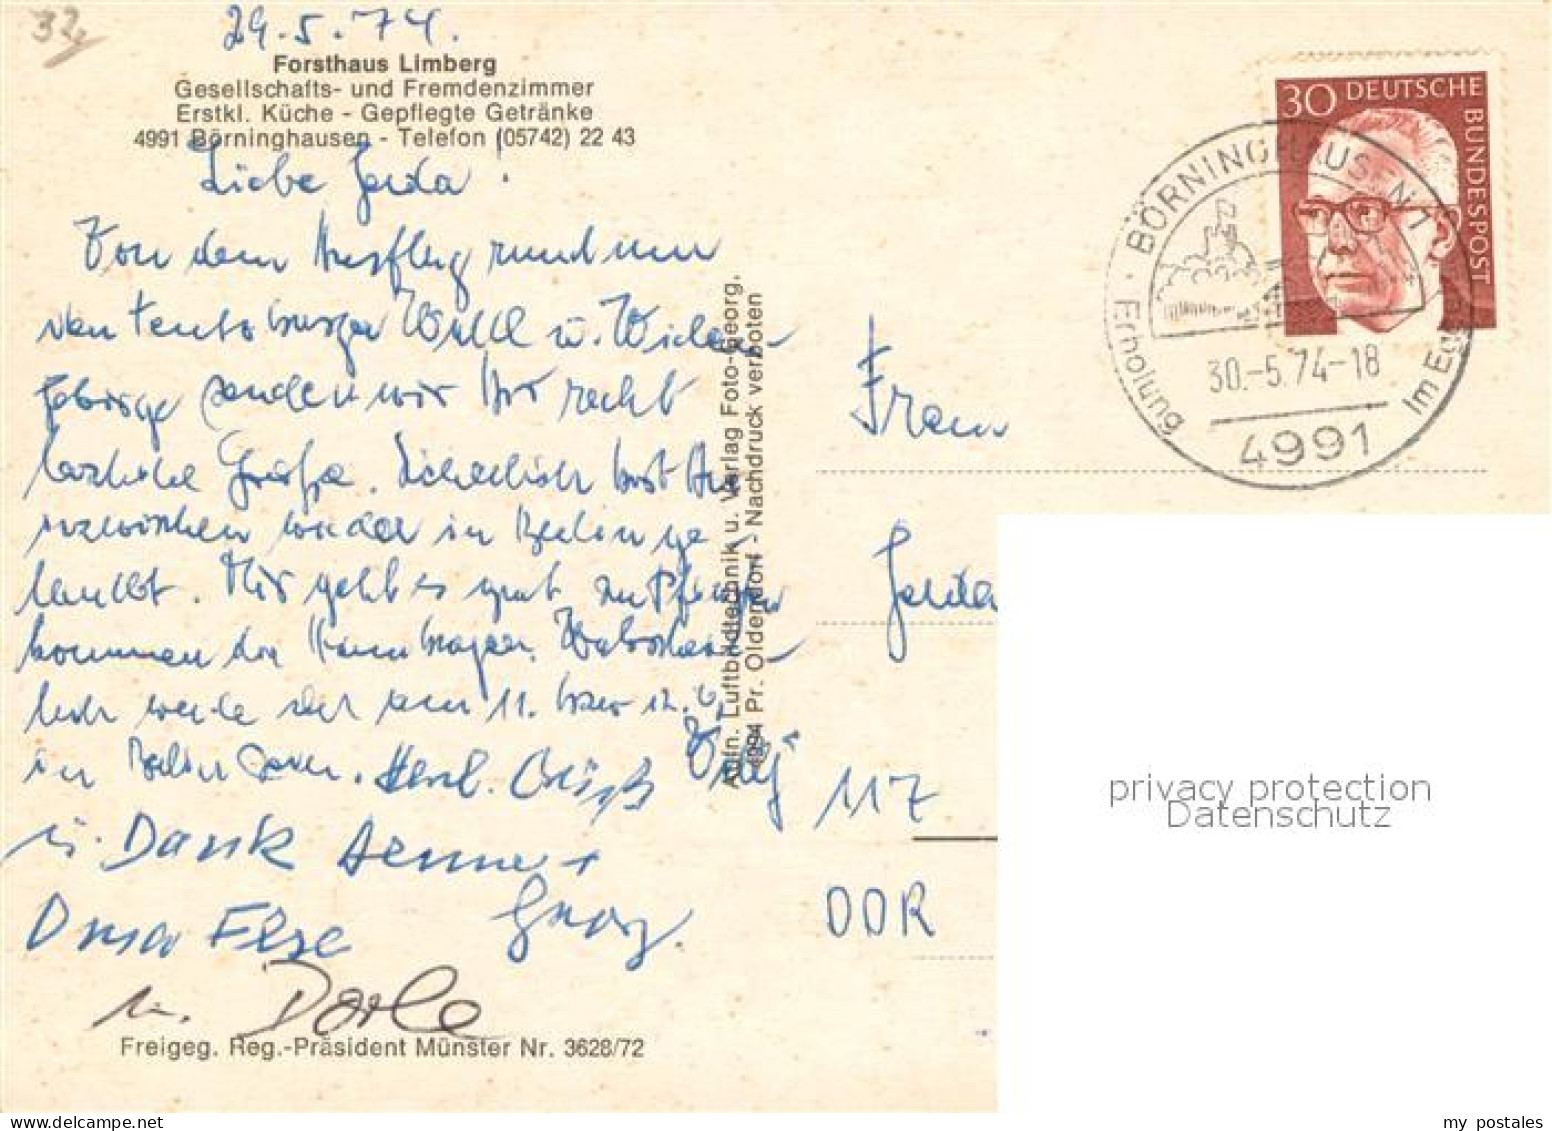 32
29.5.74.
Forsthaus Limberg
Gesellschafts- und Fremdenzimmer
Erstkl. Küche - Gepflegte Getränke
4991 Börninghausen - Telefon (05742) 22 43
Liebe Gerda!
Von dem Ausflug rund um
den Teutoburger Wald u. Wiehen-
gebirge senden wir Dir recht
herzliche Grüße. Sicherlich bist Du
inzwischen wieder in Berlin ge
landet. Mir geht es gut zu Pfingsten
kommen die Hamburger. Wahrschein-
lich werde ich am 11. bzw 12.6.
in Berlin sein. Herzl. Grüße
u. Dank
Oma Else
Georg.
u. Dorle
Freigeg. Reg.-Präsident Münster Nr. 3628/72
Aufn. Luftbildtechnik u. Verlag Foto-Georg,
4994 Pr. Oldendorf - Nachdruck verboten
30 DEUTSCHE BUNDESPOST
BÖRNINGHAUSEN 1
Erholung Im Eg
30.-5.74-18
4991
Frau
Gerda
117
DDR
privacy protection
Datenschutz
my postales